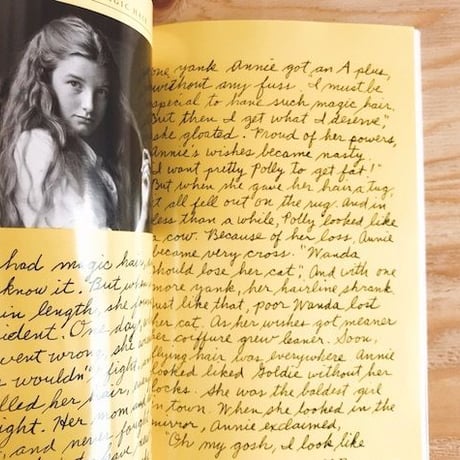 MAGIC HAIR
had magic hair,
know it. "But wh
in length, she fou
ident. One day, w
went wrong, she wa
r wouldn't fight, an
lled her hair, ne
ight. Her mom and
, and never fough
one yank Annie got an A plus,
without any fuss. I must be
special to have such magic hair.
But then I get what I deserve,"
she gloated. Proud of her powers,
Annie's wishes became nasty.
I want pretty Polly to get fat!"
But when she gave her hair a tug,
it all fell out on the rug. And in
less than a while, Polly looked like
a cow. Because of her loss, Annie
became very cross. "Wanda
should lose her cat", And with one
more yank, her hairline shrank
just like that, poor Wanda lost
her cat. As her wishes got meaner
her coiffure grew leaner. Soon,
flying hair was everywhere Annie
looked liked Goldie without her
locks. She was the baldest girl
in town. When she looked in the
mirror, Annie exclaimed,
"Oh my gosh, I look like